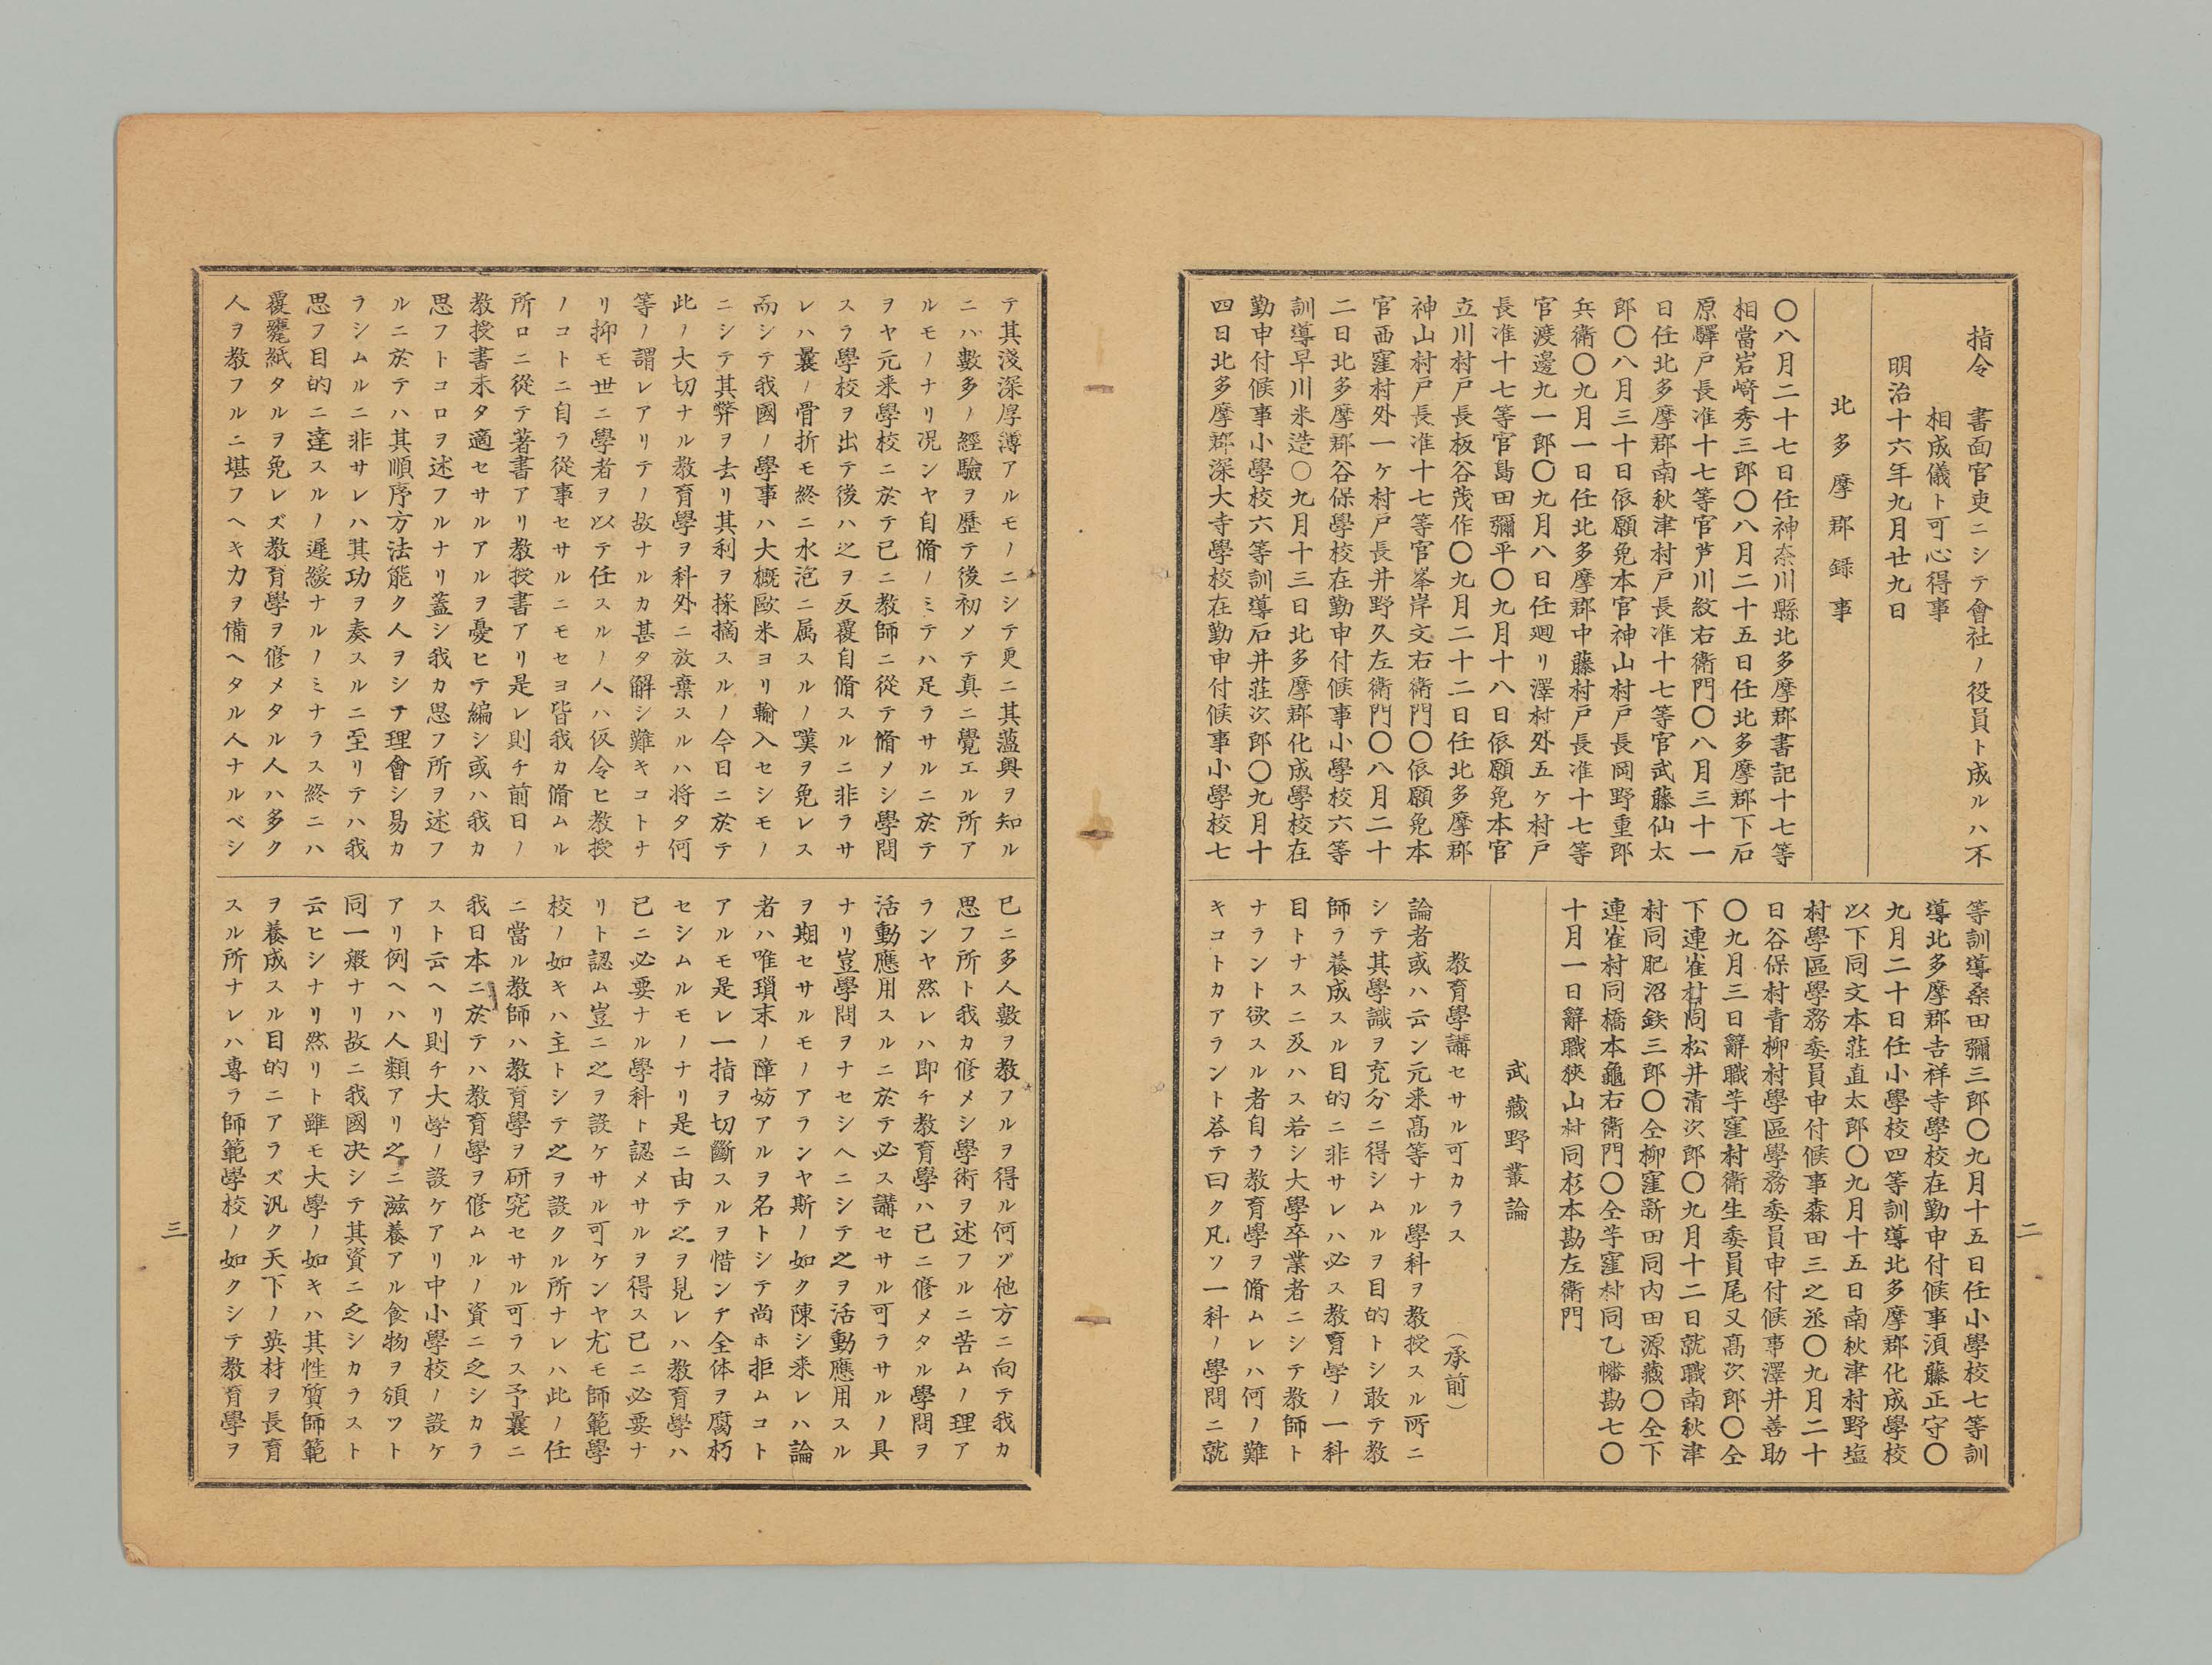 指令　書面官吏ニシテ會社ノ役員ト成ルハ不
相成儀ト可心得事
明治十六年九月廿九日
北多摩郡録事
〇八月二十七日任神奈川縣北多摩郡書記十七等
相當岩﨑秀三郎〇八月二十五日任北多摩郡下石
原驛戸長准十七等官芦川紋右衛門〇八月三十一
日任北多摩郡南秋津村戸長准十七等官武藤仙太
郎〇八月三十日依願免本官神山村戸長岡野重郎
兵衛〇九月一日任北多摩郡中藤村戸長准十七等
官渡邊九一郎〇九月八日任廻リ澤村外五ケ村戸
長准十七等官島田彌平〇九月十八日依願免本官
立川村戸長板谷茂作〇九月二十二日任北多摩郡
神山村戸長准十七等官峯岸文右衛門〇依願免本
官西窪村外一ケ村戸長井野久左衛門〇八月二十
二日北多摩郡谷保學校在勤申付候事小學校六等
訓導早川米造〇九月十三日北多摩郡化成學校在
勤申付候事小學校六等訓導石井荘次郎〇九月十
四日北多摩郡深大寺學校在勤申付候事小學校七
等訓導桑田彌三郎〇九月十五日任小學校七等訓
導北多摩郡吉祥寺學校在勤申付候事湏藤正守〇
九月二十日任小學校四等訓導北多摩郡化成學校
以下同文本荘直太郎〇九月十五日南秋津村野塩
村學區學務委員申付候事森田三之丞〇九月二十
日谷保村青柳村學區學務委員申付候事澤井善助
〇九月三日辭職芋窪村衛生委員尾又髙次郎〇仝
下連雀村同松井清次郎〇九月十二日就職南秋津
村同肥沼鉄三郎〇仝柳窪新田同内田源藏〇仝下
連雀村同橋本龜右衛門〇仝芋窪村同乙幡勘七〇
十月一日辭職狹山村同杉本勘左衛門
武藏野叢論
教育學講セサル可カラス　（承前）
論者或ハ云ン元来髙等ナル學科ヲ教授スル所ニ
シテ其學識ヲ充分ニ得シムルヲ目的トシ敢テ教
師ヲ養成スル目的ニ非サレハ必ス教育学ノ一科
目トナスニ及ハス若シ大學卒業者ニシテ教師ト
ナラント欲スル者自ラ教育學ヲ脩ムレハ何ノ難
キコトカアラント荅テ曰ク凡ソ一科ノ學問ニ就
二
テ其淺深厚薄アルモノニシテ更ニ其薀奥ヲ知ル
ニハ數多ノ經驗ヲ歴テ後初メテ真ニ覺エル所ア
ルモノナリ况ンヤ自脩ノミテハ足ラサルニ於テ
ヲヤ元来學校ニ於テ已ニ教師ニ從テ脩メシ學問
スラ學校ヲ出テ後ハ之ヲ反覆自脩スルニ非ラサ
レハ曩ノ骨折モ終ニ水泡ニ属スルノ嘆ヲ免レス
而シテ我國ノ學事ハ大概歐米ヨリ輸入セシモノ
ニシテ其弊ヲ去リ其利ヲ採摘スルノ今日ニ於テ
此ノ大切ナル教育學ヲ科外ニ放棄スルハ将タ何
等ノ謂レアリテノ故ナルカ甚タ解シ難キコトナ
リ抑モ世ニ學者ヲ以テ任スルノ人ハ仮令ヒ教授
ノコトニ自ラ從事セサルニモセヨ皆我カ脩ムル
所ロニ從テ著書アリ教授書アリ是レ則チ前日ノ
教授書未タ適セサルアルヲ憂ヒテ編シ或ハ我カ
思フトコロヲ述フルナリ蓋シ我カ思フ所ヲ述フ
ルニ於テハ其順序方法能ク人ヲシテ理會シ易カ
ラシムルニ非サレハ其功ヲ奏スルニ至リテハ我
思フ目的ニ達スルノ遲緩ナルノミナラス終ニハ
覆甕紙タルヲ免レズ教育學ヲ修メタル人ハ多ク
人ヲ教フルニ堪フヘキ力ヲ備ヘタル人ナルベシ
已ニ多人數ヲ教フルヲ得ル何ゾ他方ニ向テ我カ
思フ所ト我カ修メシ學術ヲ述フルニ苦ムノ理ア
ランヤ然レハ即チ教育學ハ已ニ修メタル學問ヲ
活動應用スルニ於テ必ス講セサル可ラサルノ具
ナリ豈學問ヲナセシヘニシテ之ヲ活動應用スル
ヲ期セサルモノアランヤ斯ノ如ク陳シ来レハ論
者ハ唯瑣末ノ障妨アルヲ名トシテ尚ホ拒ムコト
アルモ是レ一指ヲ切斷スルヲ惜ンテ全体ヲ腐朽
セシムルモノナリ是ニ由テ之ヲ見レハ教育學ハ
已ニ必要ナル學科ト認メサルヲ得ス已ニ必要ナ
リト認ム豈ニ之ヲ設ケサル可ケンヤ尤モ師範學
校ノ如キハ主トシテ之ヲ設クル所ナレハ此ノ任
ニ當ル教師ハ教育學ヲ研究セサル可ラス予曩ニ
我日本ニ於テハ教育學ヲ修ムルノ資ニ乏シカラ
スト云ヘリ則チ大学ノ設ケアリ中小學校ノ設ケ
アリ例ヘハ人類アリ之ニ滋養アル食物ヲ頒ツト
同一般ナリ故ニ我國决シテ其資ニ乏シカラスト
云ヒシナリ然リト雖モ大學ノ如キハ其性質師範
ヲ養成スル目的ニアラズ汎ク天下ノ英材ヲ長育
スル所ナレハ專ラ師範學校ノ如クシテ教育學ヲ
三